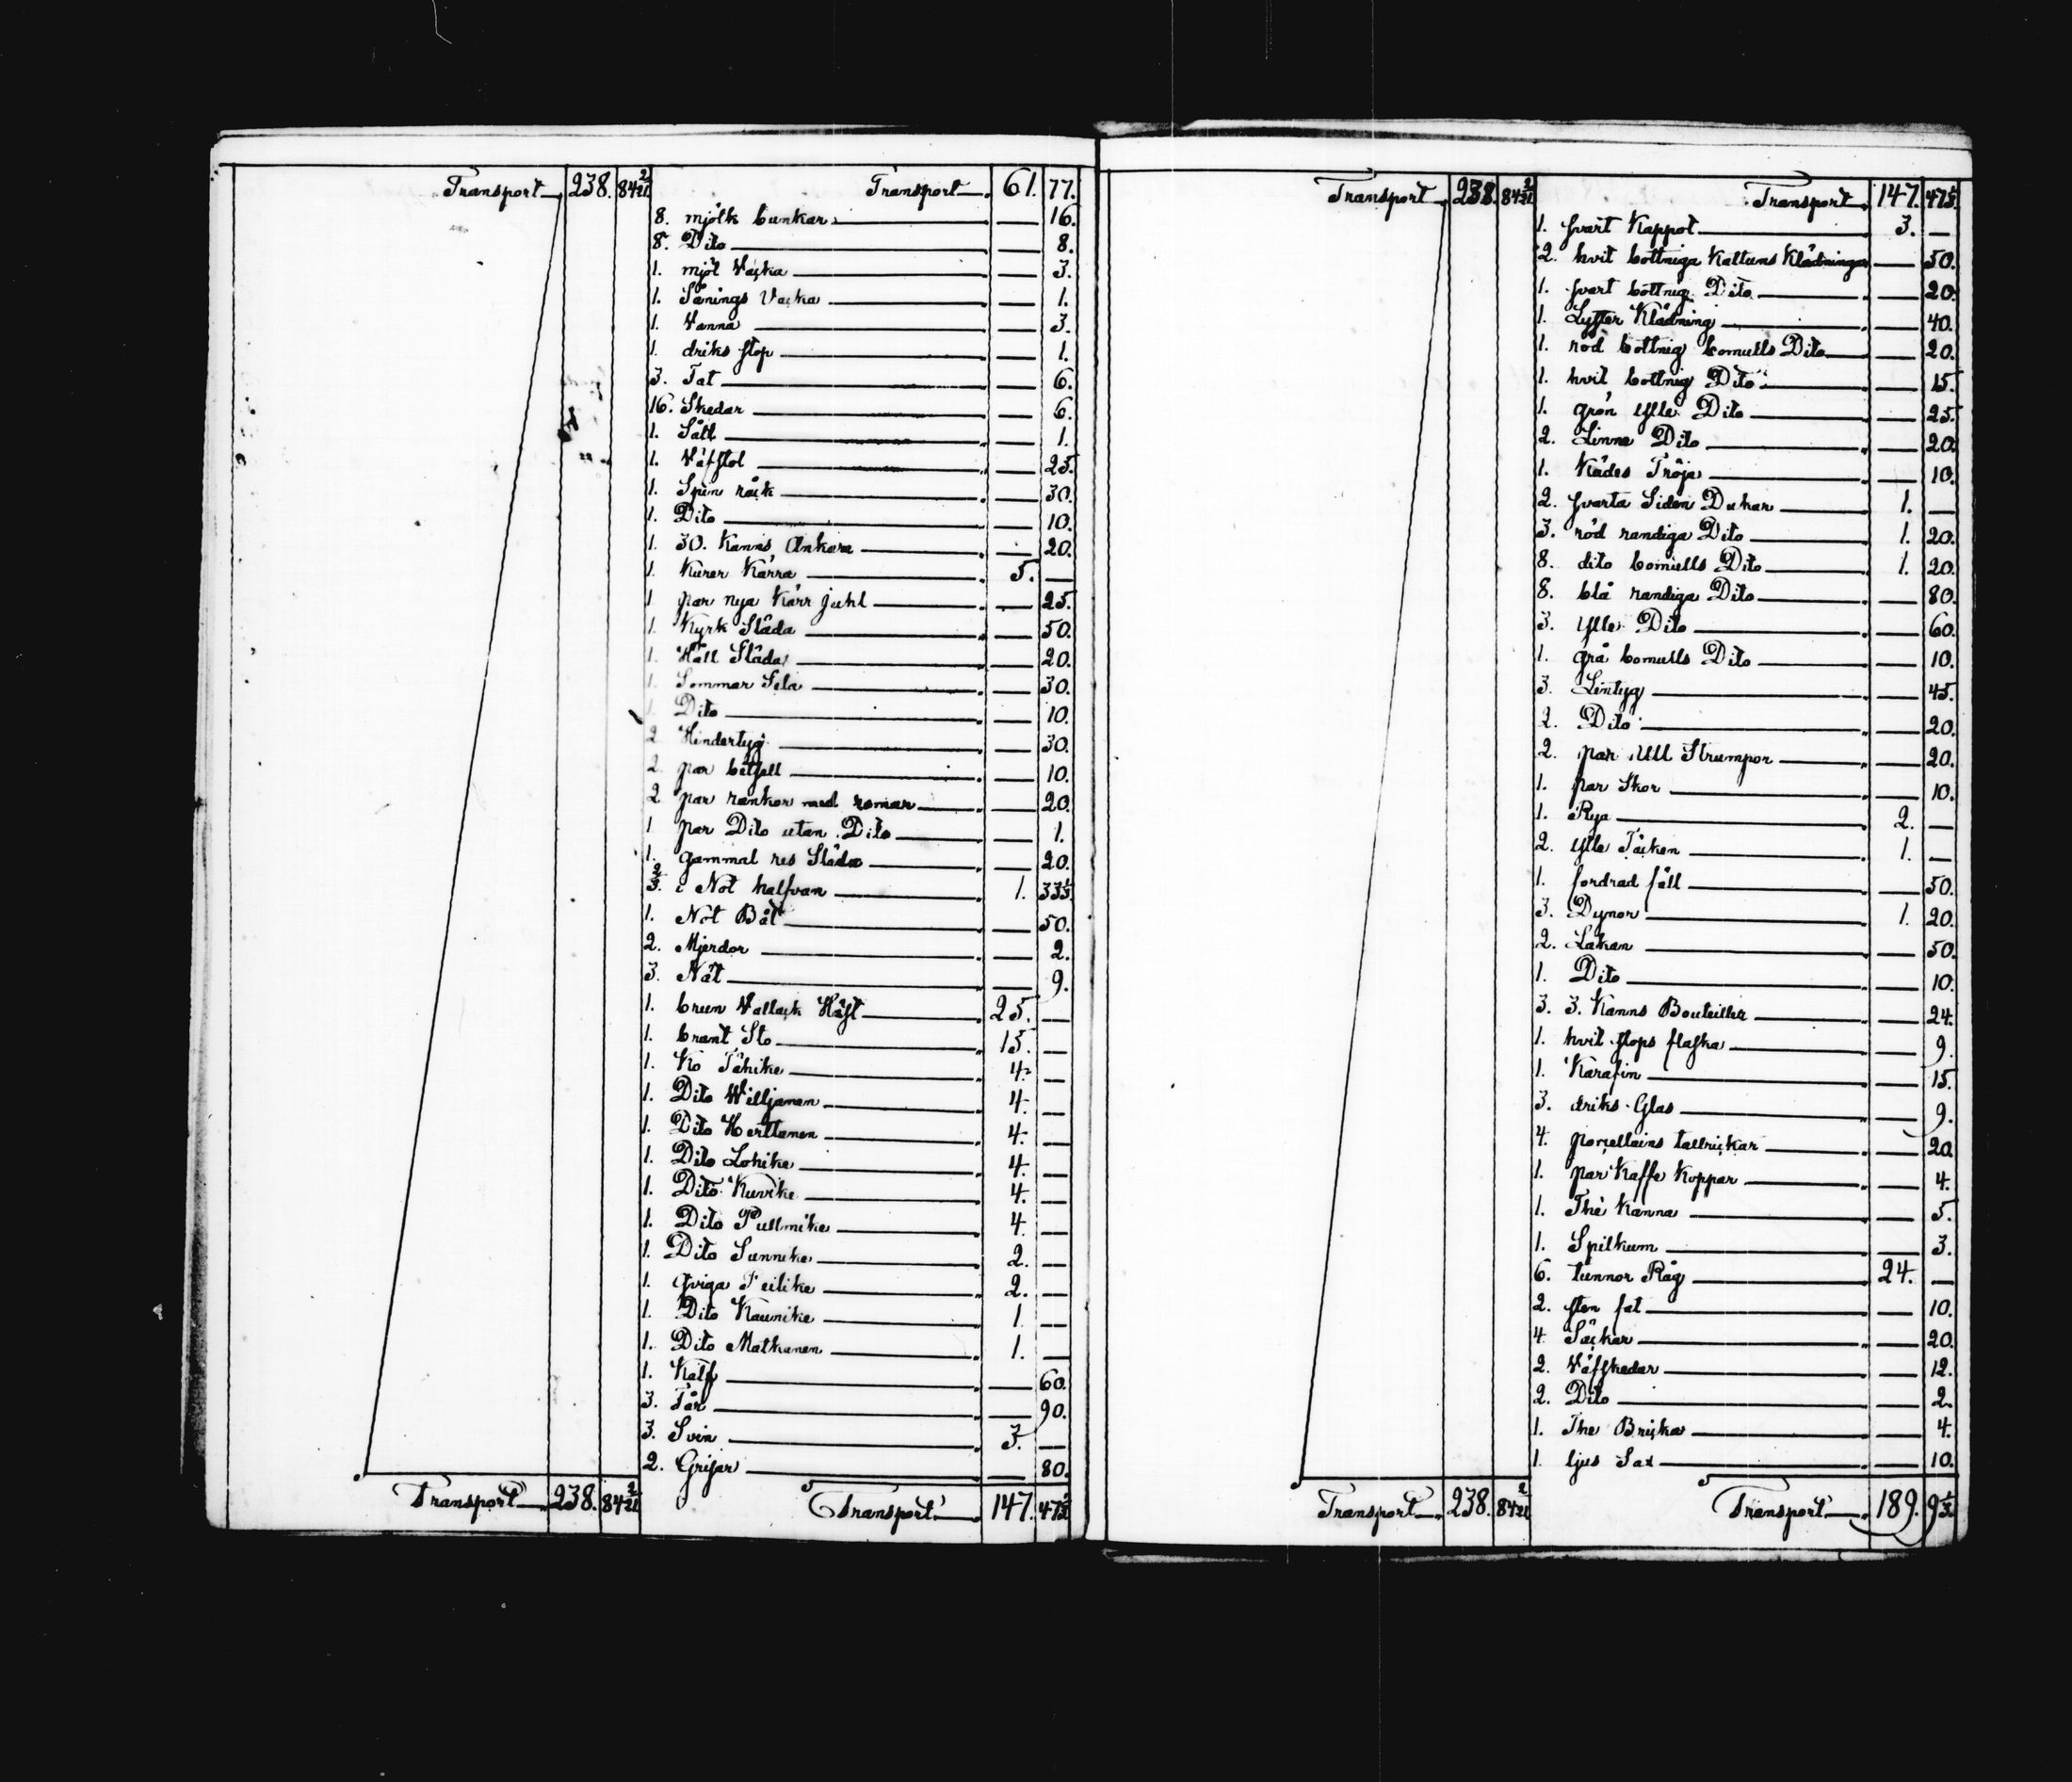 Transport 238. 84 2/21 Transport 61. 77.
8. mjölk bunkar — 16.
8. Dito — 8.
1. mjöl Vacka — 3.
1. Sånings Vacka — 1.
1. Vanna — 3.
1. driks stop — 1.
3. Fat — 6.
16. Skedar — 6.
1. Såll — 1.
1. Väfstol — 25.
1. Spin råck — 30.
1. Dito — 10.
1. 30. Kanns Ankare — 20.
1. Kurer Kärra 5. —
1 par nya Kärr juhl — 25.
1. Kyrk Släda — 50.
1. Håll Släda — 20.
1. Sommar Sela — 30.
1. Dito — 10.
2 Hindertyg — 30.
2. par betsell — 10.
2 par rankor med remar — 20.
1 par Dito utan Dito — 1.
1. gammal res Släda — 20.
2/3. i Not halfvan 1. 33 1/3
1. Not Båt — 50.
2. Mjerdor — 2.
3. Nät — 9.
1. brun Vallack Häst 25. —
1. brant Sto 15. —
1. Ko Tähike 4. —
1. Dito Willjanen 4. —
1. Dito Herttanen 4. —
1. Dito Lohike 4. —
1. Dito Kuvike 4. —
1. Dito Pullmike 4. —
1. Dito Sunnike 2. —
1. qviga Peilike 2. —
1. Dito Kaunike 1. —
1. Dito Matkanen 1. —
1. Kalf — 60.
3. Får — 90.
3. Svin 3. —
2. Grisar — 80.
Transport 238. 84 2/21 Transport 147. 47 1/3
Transport 238. 84 2/21 Transport 147. 47 1/3
1. svart Kappot 3. —
2. hvit bottniga Kattuns Klädningar — 50.
1. svart bottnig Dito — 20.
1. Lyster Klädning — 40.
1. röd bottnig bomulls Dito — 20.
1. hvit bottnig Dito — 15.
1. grön ylle Dito — 25.
2. Linne Dito — 20.
1. Klädes Tröja — 10.
2. svarta Siden Dukar 1. —
3. röd randiga Dito 1. 20.
8. dito bomulls Dito 1. 20.
8. blå randiga Dito — 80.
3. ylle Dito — 60.
1. grå bomulls Dito — 10.
3. Lintyg — 45.
2. Dito — 20.
2. par Ull Strumpor — 20.
1. par Skor — 10.
1. Rya 2. —
2. ylle Täcken 1. —
1. fordrad fäll — 50.
3. Dynor 1. 20.
2. Lakan — 50.
1. Dito — 10.
3. 3. Kanns Bouteiller — 24.
1. hvit stops flaska — 9.
1. Karafin — 15.
3. driks Glas — 9.
4. porcellains tallrickar — 20.
1. par Kaffe Koppar — 4.
1. The Kanna — 5.
1. Spilkum — 3.
6. tunnor Råg 24. —
2. sten fat — 10.
4 Säckar — 20.
2. Väfskedar — 12.
2. Dito — 2.
1. The Bricka — 4.
1. ljus Sax — 10.
Transport 238. 84 2/21 Transport 189. 9 1/3